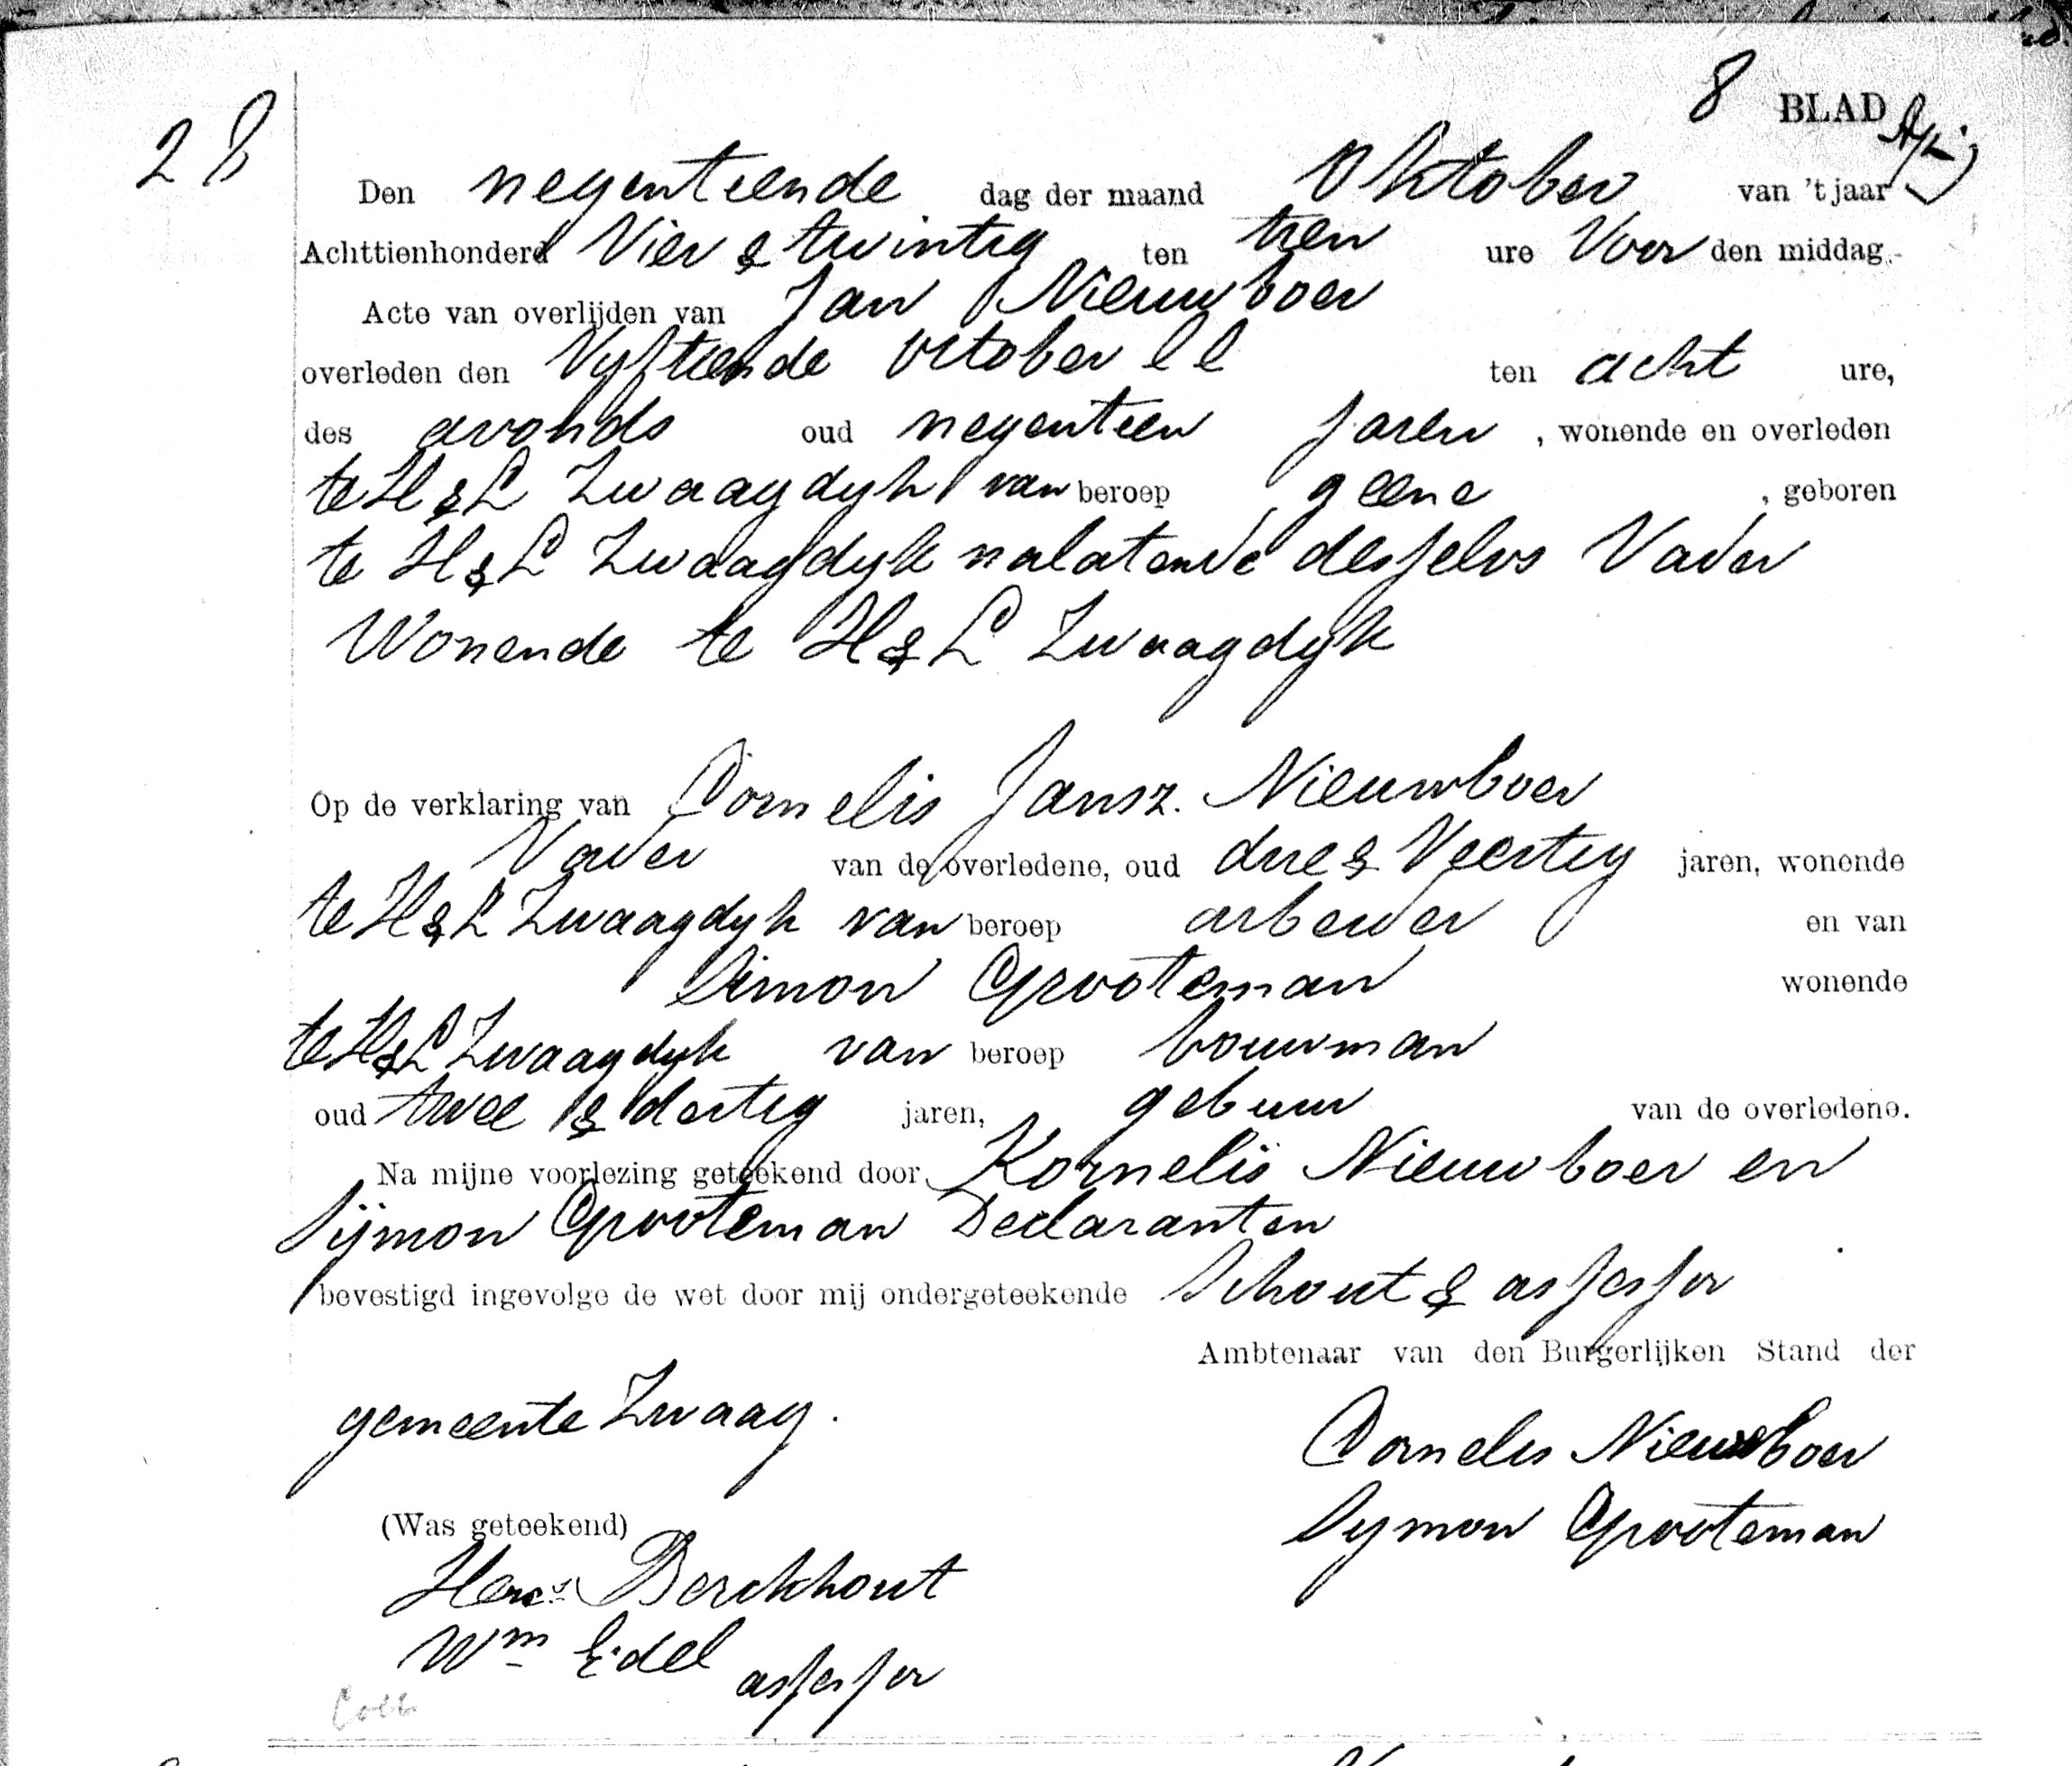 8 BLAD
28
Den negentiende dag der maand Oktober van 't jaar
Achttienhonderd Vier & twintig ten tien ure Voor den middag.
Acte van overlijden van Jan Nieuwboer
overleden den Vyftiende october ll ten acht ure,
des avonds oud negentien Jaren, wonende en overleden
te H & L Zwaagdyk van beroep geene, geboren
te H & L Zwaagdyk nalatende desselvs Vader
Wonende te H & L Zwaagdyk
Op de verklaring van Cornelis Jansz. Nieuwboer
Vader van de overledene, oud drie & Veertig jaren, wonende
te H & L Zwaagdyk van beroep arbeider en van
Simon Grooteman wonende
te H & L Zwaagdyk van beroep bouwman
oud twee & dertig jaren, gebuur van de overledene.
Na mijne voorlezing geteekend door Kornelis Nieuwboer en
Sijmon Grooteman Declaranten
bevestigd ingevolge de wet door mij ondergeteekende Schout & assessor
Ambtenaar van den Burgerlijken Stand der
gemeente Zwaag.
Cornelis Nieuwboer
Symon Grooteman
(Was geteekend)
Berckhout
Wm Edel assessor